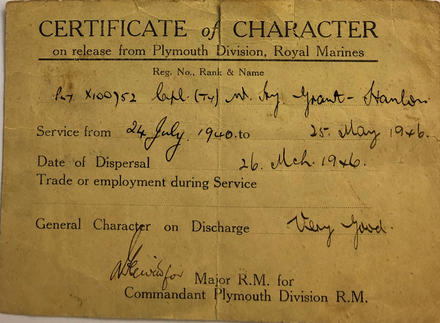 CERTIFICATE of CHARACTER
on release from Plymouth Division, Royal Marines
Reg. No., Rank & Name
X100952 Cpl (Ty) Grant-Hanlon
Service from 24 July 1940. to 25 May 1946.
Date of Dispersal 26. Mch. 1946.
Trade or employment during Service
General Character on Discharge Very Good.
for Major R.M. for
Commandant Plymouth Division R.M.